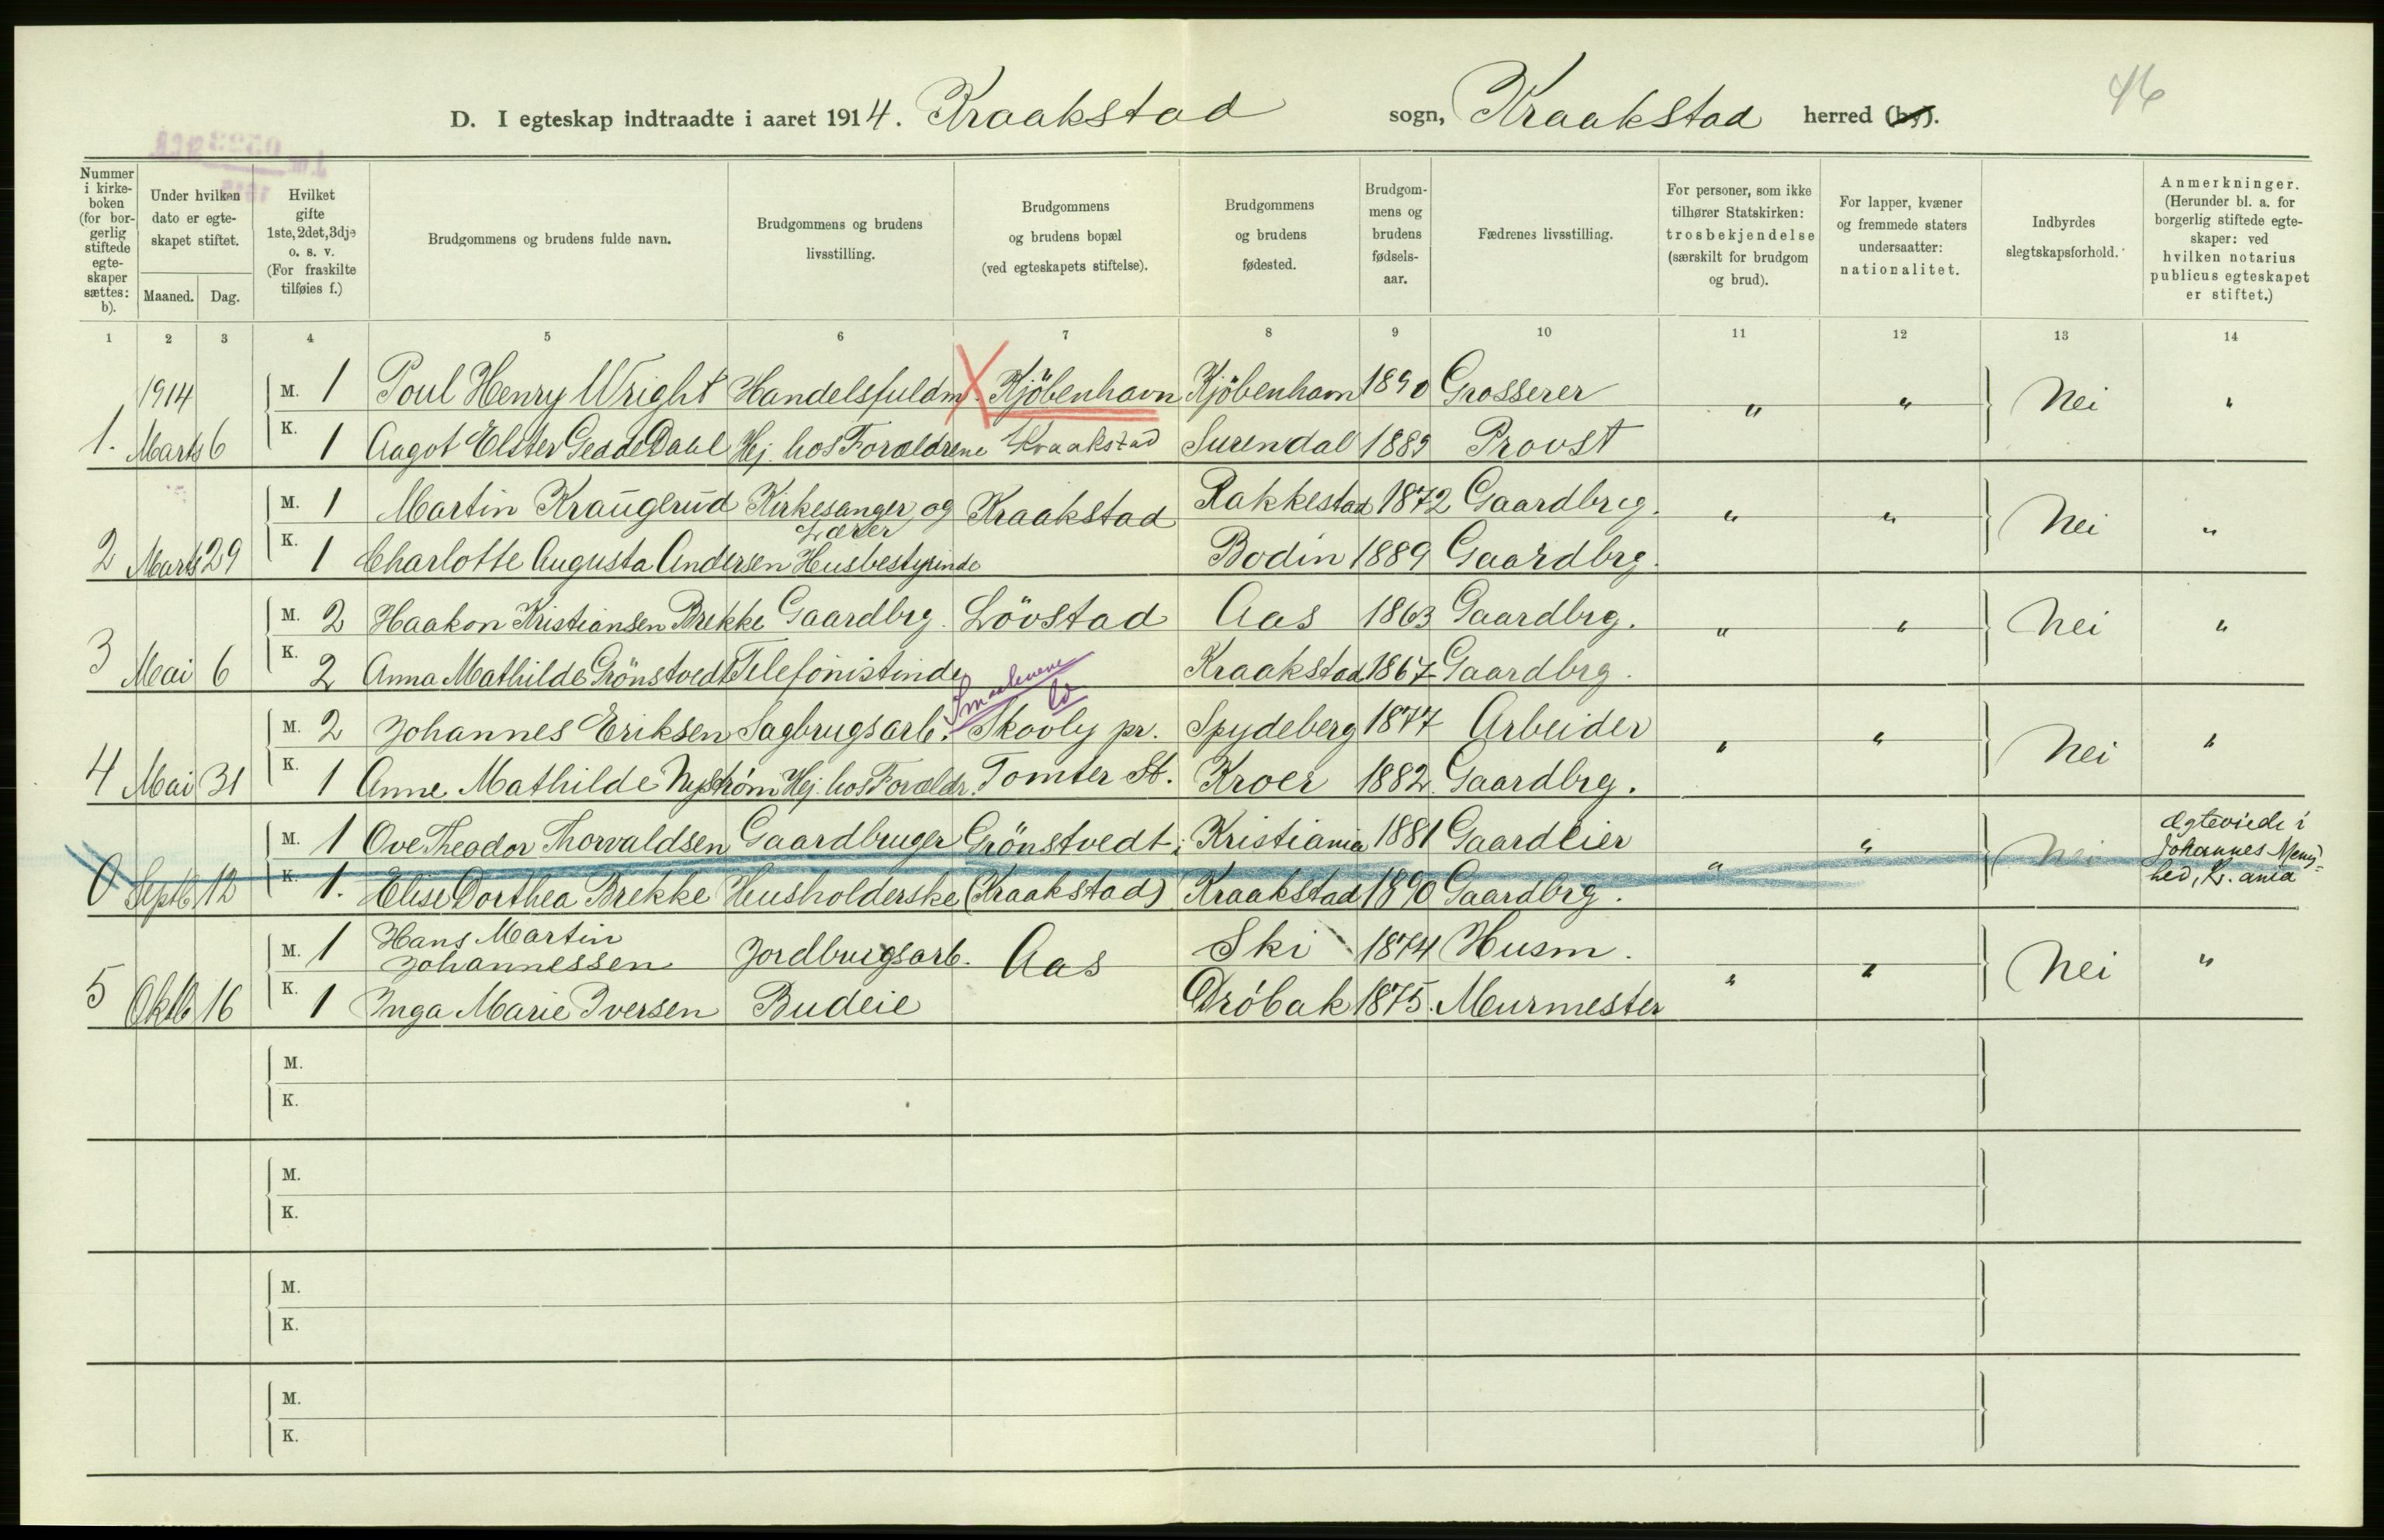 46
D. I egteskap indtraadte i aaret 1914. Kraakstad sogn, Kraakstad herred (by).
Nummer i kirke-boken (for bor-gerlig stiftede egte-skaper sættes: b).
Under hvilken dato er egte-skapet stiftet.
Maaned. Dag.
Hvilket gifte 1ste, 2det, 3dje o. s. v. (For fraskilte tilføies f.)
Brudgommens og brudens fulde navn.
Brudgommens og brudens livsstilling.
Brudgommens og brudens bopæl (ved egteskapets stiftelse).
Brudgommens og brudens fødested.
Brudgom-mens og brudens fødsels-aar.
Fædrenes livsstilling.
For personer, som ikke tilhører Statskirken: trosbekjendelse (særskilt for brudgom og brud).
For lapper, kvæner og fremmede staters undersaatter: nationalitet.
Indbyrdes slegtskapsforhold.
Anmerkninger. (Herunder bl. a. for borgerlig stiftede egte-skaper: ved hvilken notarius publicus egteskapet er stiftet.)
1 2 3 4 5 6 7 8 9 10 11 12 13 14
1914 M. 1 Poul Henry Wright Handelsfuldm. X Kjöbenhavn Kjöbenhavn 1890 Grosserer " " Nei "
1. Marts 6 K. 1 Aagot Elster Gedde Dahl Hj. hos Forældrene Kraakstad Surendal 1889 Provst
M. 1 Martin Kraugerud Kirkesanger og Lærer Kraakstad Rakkestad 1872 Gaardbrg. " " Nei "
2 Marts 29 K. 1 Charlotte Augusta Andersen Husbestyrinde Bodin 1889 Gaardbrg.
M. 2 Haakon Kristiansen Brekke Gaardbrg. Lövstad Aas 1863 Gaardbrg. " " Nei "
3 Mai 6 K. 2 Anna Mathilde Grönstvedt Telefonistinde Kraakstad 1867 Gaardbrg.
Smaalenene
M. 2 Johannes Eriksen Sagbrugsarb. Skovly pr. Spydeberg 1877 Arbeider " " Nei "
4 Mai 31 K. 1 Anne Mathilde Nyström Hj. hos Forældr. Tomter St. Kroer 1882 Gaardbrg.
M. 1 Ove Theodor Thorvaldsen Gaardbruger Grönstvedt i Kristiania 1881 Gaardeier " " Nei Ægteviede i Johannes Menig=hed, Kr.ania
0 Septb 12 K. 1. Elise Dorthea Brekke Husholderske (Kraakstad) Kraakstad 1890 Gaardbrg.
M. 1 Hans Martin Johannessen Jordbrugsarb. Aas Ski 1874 Husm. " " Nei "
5 Oktb 16 K. 1 Inga Marie Iversen Budeie Dröbak 1875. Murmester
M.
K.
M.
K.
M.
K.
M.
K.